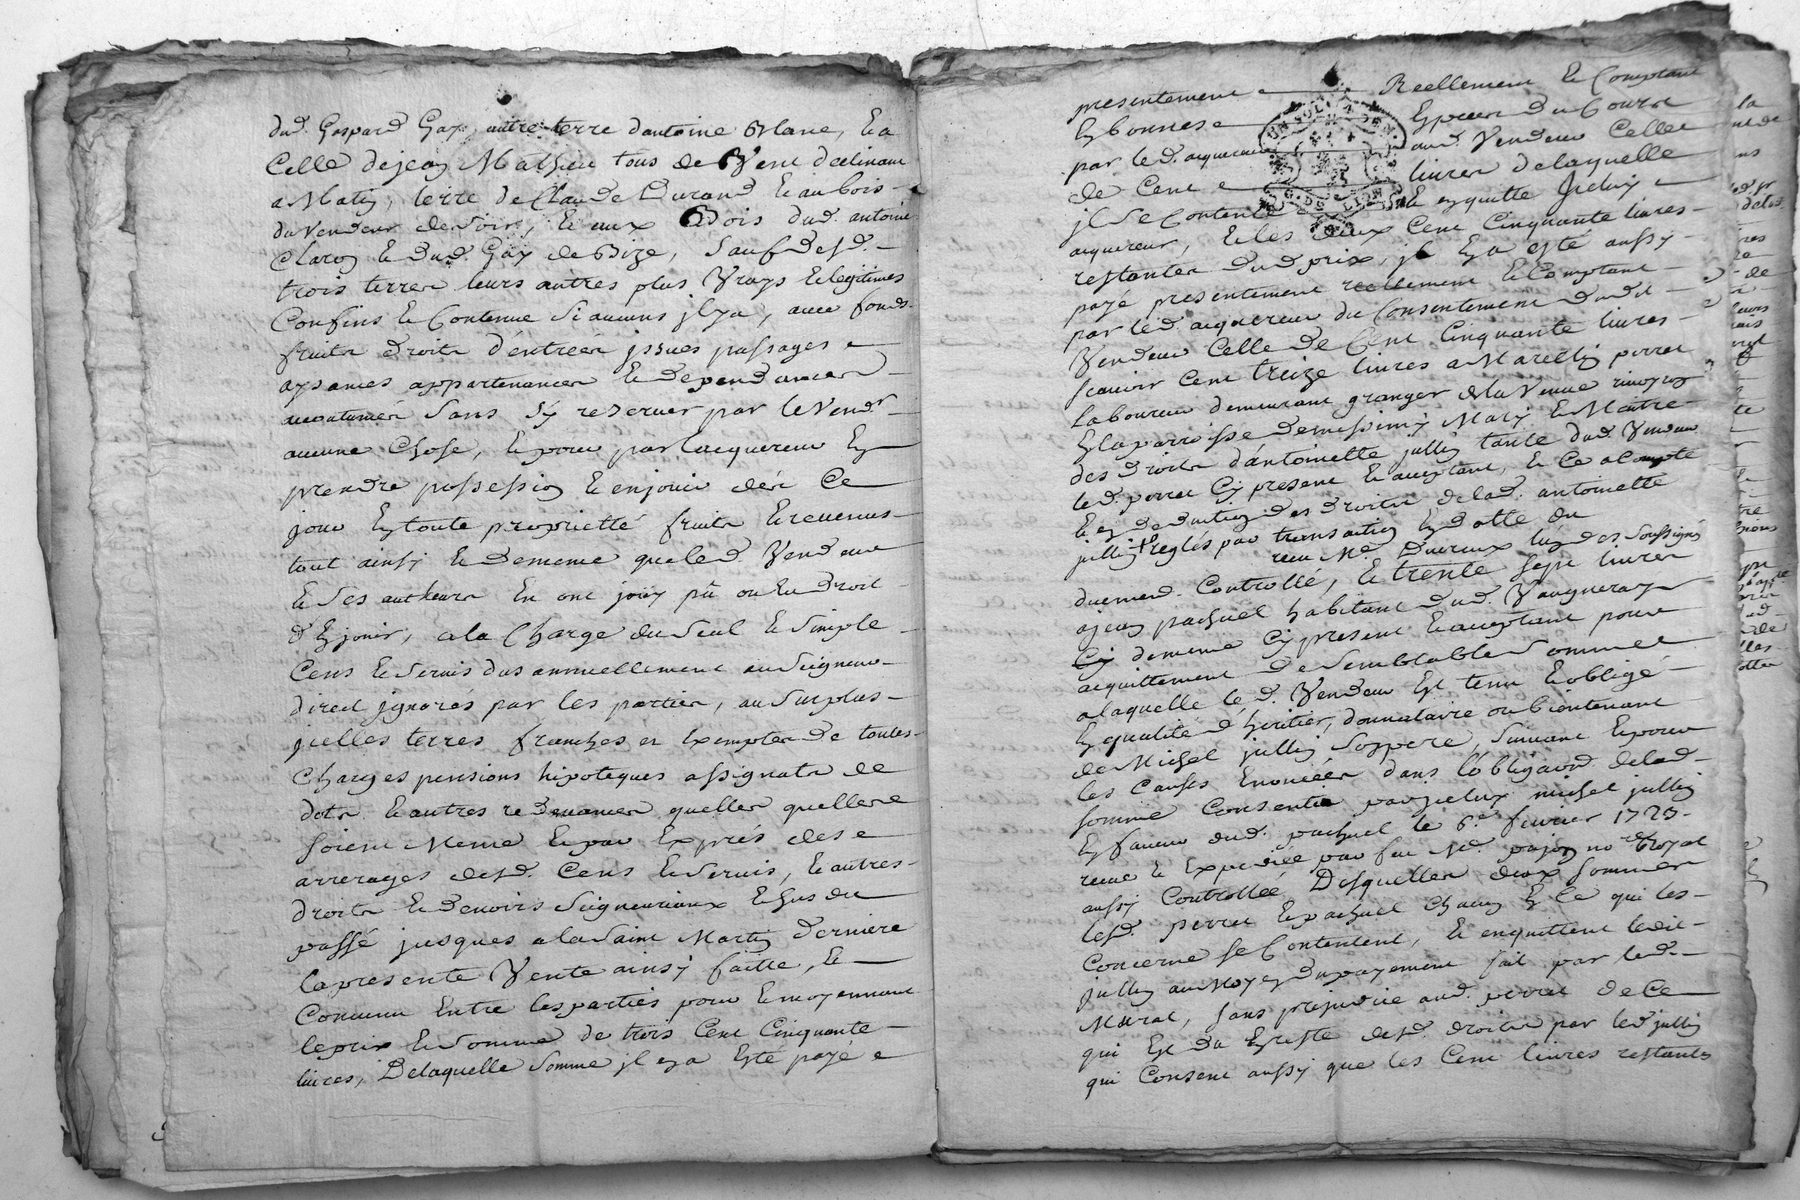 dud. Gaspard Gay, autre terre dantoine Blanc, Et a
Celle dejean Mathieu tous de Vent declinant
a Matin, terre de Claude Durand Et au bois
du Vendeur de soir, Et aux Bois dud. antoine
Claron Et dud. Gay de Bize, Sauf desd.
trois terres leurs autres plus Vrays Et legitimes
Confins Et Contenue Si aucuns jlya, avec fonds
fruits droits d'entrées jssues passages
aysances appartenances Et dependances
accoutumées Sans s'y reserver par le Vendr
aucune Chose, Et pour par lacquereur En
prendre possession Et enjouir dés Ce
jour En toute proprietté fruits Et revenus
tout ainsy Et dememe que led. Vendeur
Et Ses autheurs En ont joüy pû ou Eu droit
d'En jouir, a la Charge du Seul Et Simple
Cens Et Servis dus annuellement au Seigneur
direct jgnorés par les parties, au Surplus
jcelles terres franches et Exemptes de toutes
Charges pensions hipoteques assignats de
dots Et autres redevances quelles quelles
soient Meme Et par Exprés des
arrerages desd. Cens Et Servis, Et autres
droits Et devoirs Seigneuriaux Echus du
passé jusques a la Saint Martin derniere
la presente Vente ainsy faitte, Et
Convenu Entre les parties pour Et moyennant
le prix Et Somme de trois Cent Cinquante
livres, De laquelle Somme jl en a Esté payé
presentement Reellement Et Comptant
En bonnes Especes du Cours
par led. acquereur aud. Vendeur Celle
de Cent livres de laquelle
jl Se Contente Et en quitte Jceluy
acquereur, Et les deux Cent Cinquante livres
restantes dud prix, jl En a esté aussy
payé presentement reellement Et Comptant
par led. acquereur du Consentement dudit
Vendeur Celle de Cent Cinquante livres
scavoir Cent treize livres a Marellin perret
laboureur demeurant granger de la Veuve
En la parroisse de Messimy Mary Et Maitre
des droits dantoinette jullin tante dud. Vendeur
led. perret Cy present Et acceptant, Et Ce a Compte
Et en deduction des droits de lad. antoinette
jullin reglés par transaction En datte du
recu Me. Duroux lun des Soussignés
duemend. Controllé, Et trente Sept livres
a jean pachuel habitant dud. Vaugneray
Cy dememe Cy present Et acceptant pour
acquittement de Semblable Somme
a laquelle le d. Vendeur Est tenu Et obligé
En qualité d'heritier, donnataire ou bientenant
de Michel jullin Son pere, Suivant Et pour
les Causes Enoncées dans l'obligaond. delad.
Somme Consentie par jceluy michel jullin
En faveur dud. pachuel le 6e. fevrier 1723.
recue Et Expediée par feu Me. pajon nore. Royal
aussy Controllée, Desquelles deux Sommes
lesd. perret Et pachuel Chacun En Ce qui les
Concerne Se Contentent, Et enquittent ledit
jullin au Moyen du payement fait par led.
Murat, Sans prejudice aud. perret de Ce
qui Est du En reste desd. droits par led jullin
qui Consent aussy que les Cent livres restants